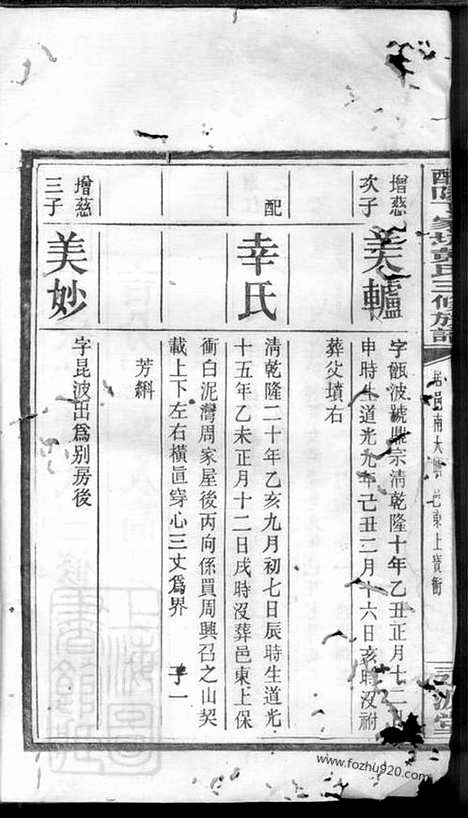 醴陵 家坊黄氏三修族譜
居邑南大 邑東上寶衝
增慈次子
美轤
字甑波號 宗清乾隆十年乙丑正月十二
申時生道光九年己丑二月十六日亥時沒祔
葬父墳右
配
幸氏
清乾隆二十年乙亥九月初七日辰時生道光
十五年乙未正月十二日戌時沒葬邑東上保
衝白泥灣周家屋後丙向係買周興召之山契
載上下左右橫直穿心三丈爲界 子一
芳㪺
增慈三子
美妙
字昆波出爲别房後
www.fozhu920.com